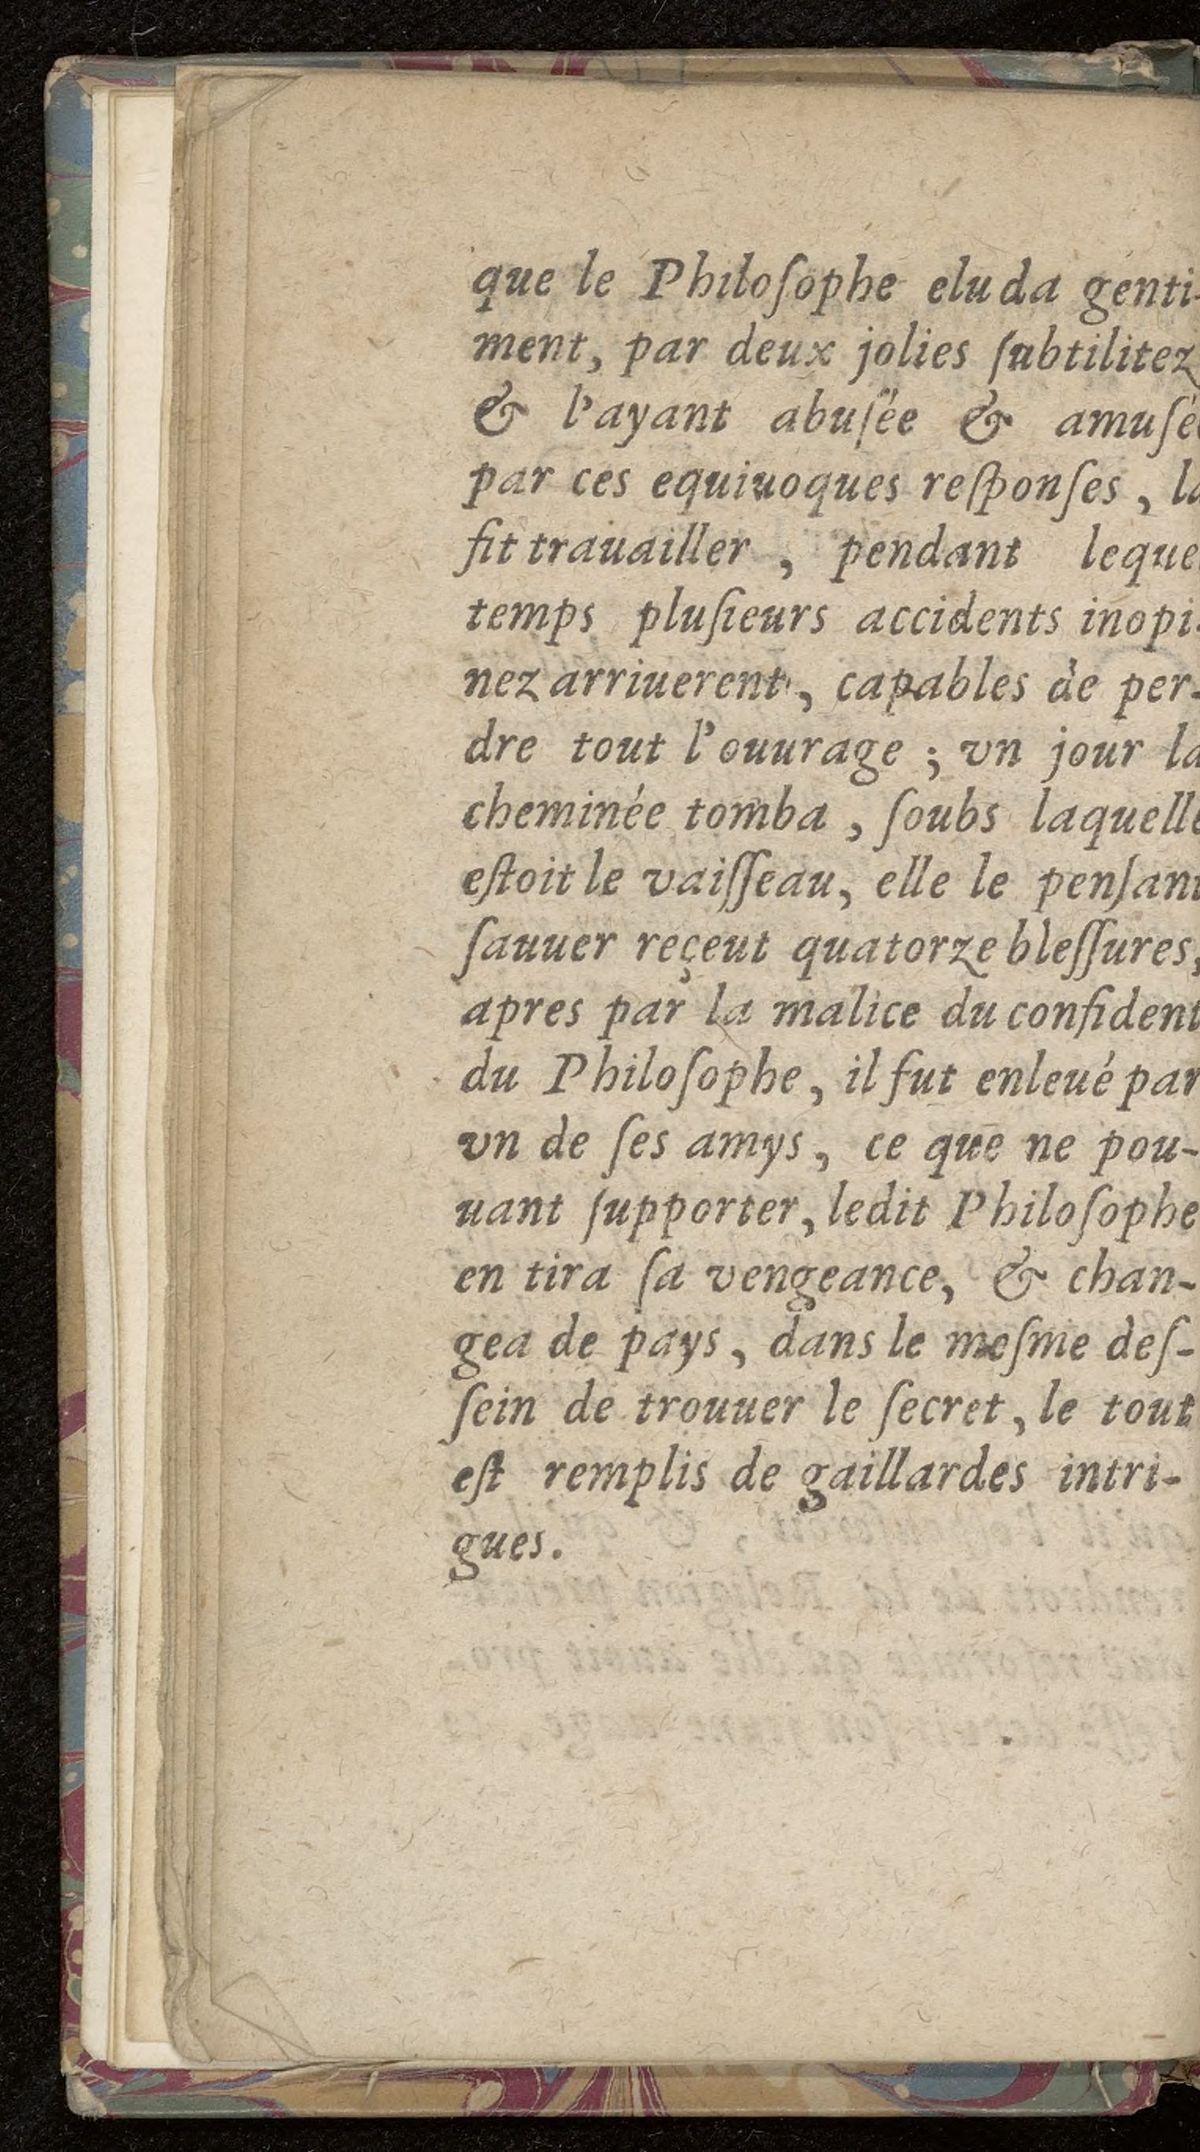 que le Philoſophe eluda genti-
ment, par deux jolies ſubtilitez
& l'ayant abuſée & amuſé
par ces equiuoques reſponſes, la
fit trauailler, pendant leque
temps pluſieurs accidents inopi-
nez arriuerent, capables de per-
dre tout l'ouurage ; vn jour la
cheminée tomba, ſoubs laquelle
eſtoit le vaiſſeau, elle le penſant
ſauuer reçeut quatorze bleſſures,
apres par la malice du confident
du Philoſophe, il fut enleué par
vn de ſes amys, ce que ne pou-
uant ſupporter, ledit Philoſophe
en tira ſa vengeance, & chan-
gea de pays, dans le meſme deſ-
ſein de trouuer le ſecret, le tout
eſt remplis de gaillardes intri-
gues.